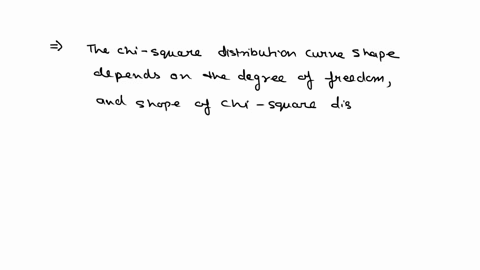 ⇒ The chi-square distribution curve shape
depends on the degree of freedom,
and shape of chi-square dis